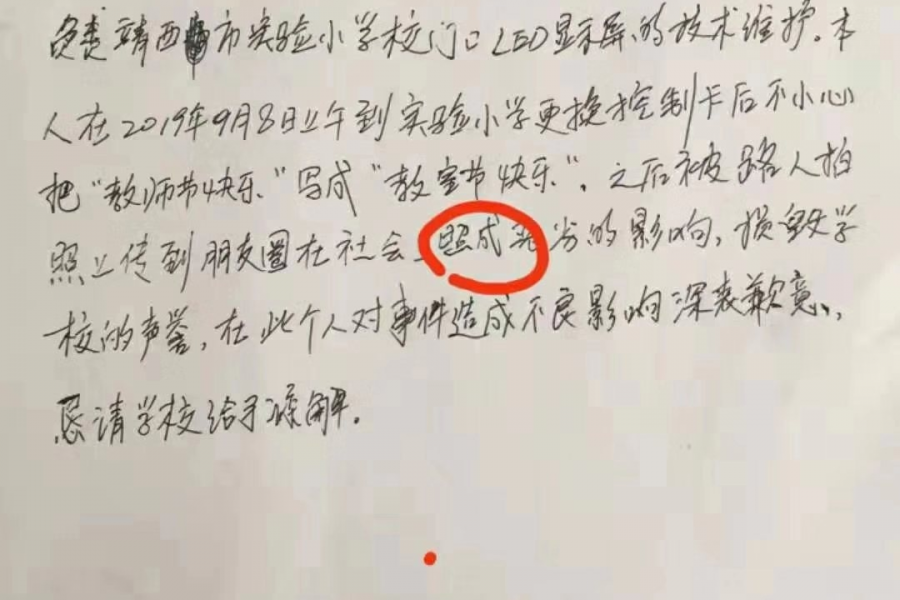 负责靖西市实验小学校门口LED显示屏的技术维护。本
人在2019年9月8日上午到实验小学更换控制卡后不小心
把“教师节快乐”写成“教室节快乐”。之后被路人拍
照上传到朋友圈在社会上照成充分的影响，损毁学
校的声誉，在此个人对事件造成不良影响深表歉意。，
恳请学校给予谅解。